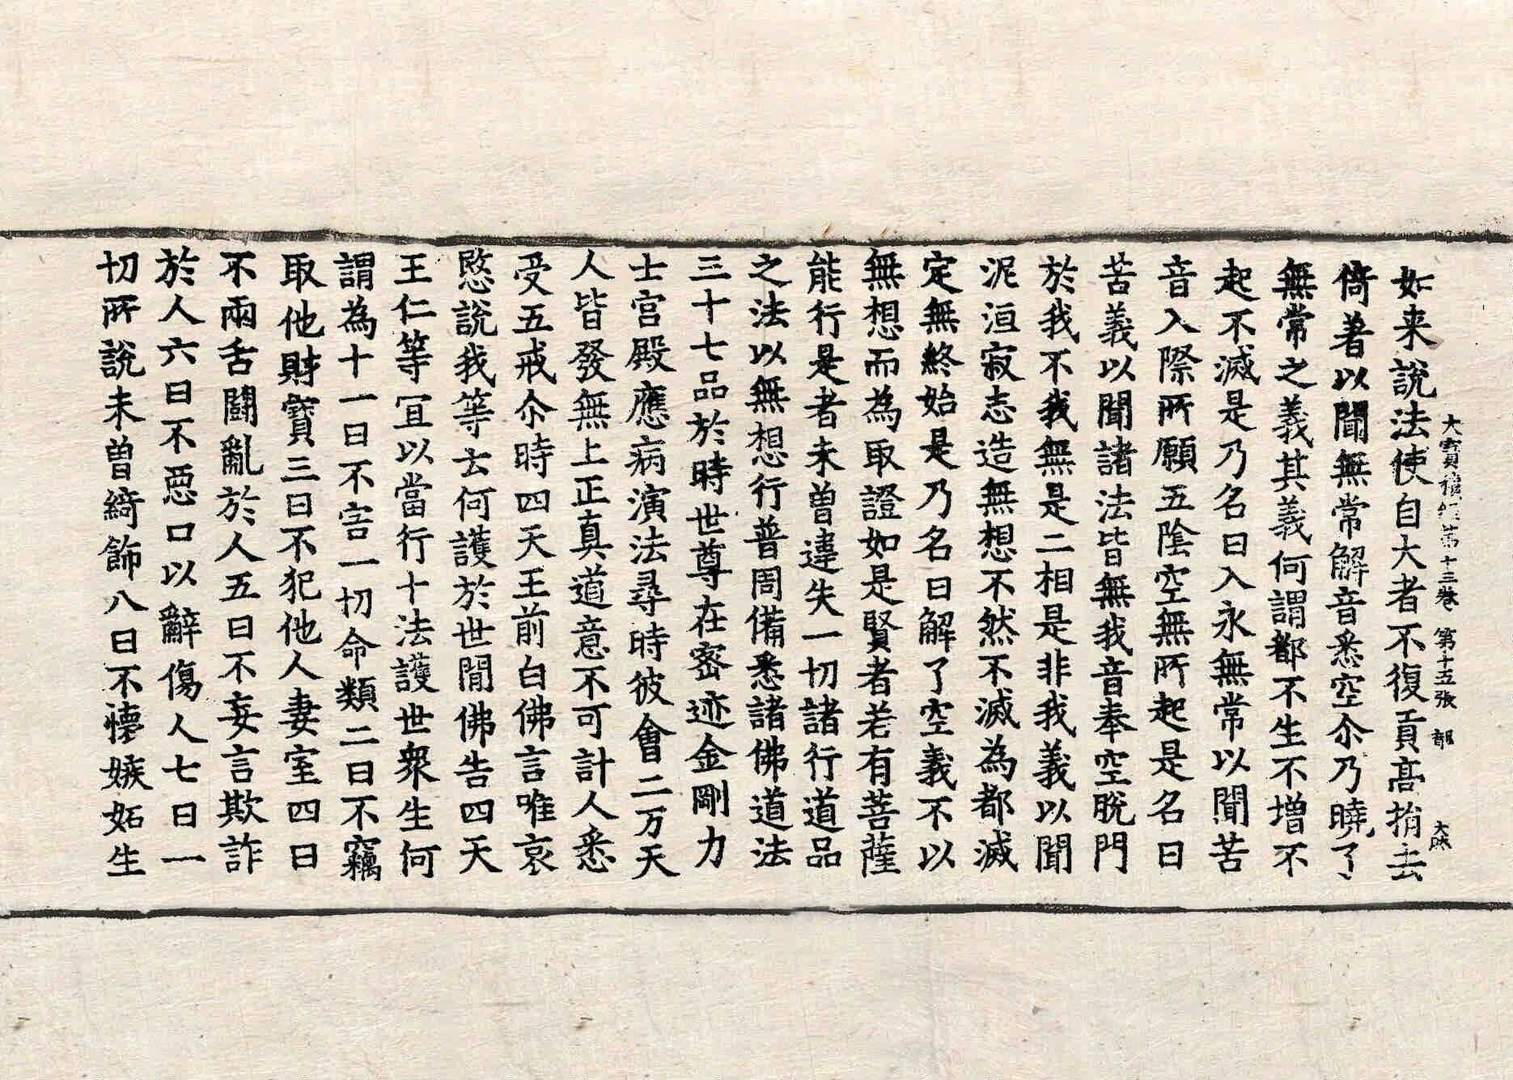 大寶積經第十三卷 第十五張 部 大成
如来說法使自大者不復貢髙捐去
倚著以聞無常解音悉空尒乃曉了
無常之義其義何謂都不生不增不
起不滅是乃名曰入永無常以聞苦
音入際所願五陰空無所起是名曰
苦義以聞諸法皆無我音奉空脫門
於我不我無是二相是非我義以聞
泥洹寂志造無想不然不滅為都滅
定無終始是乃名曰解了空義不以
無想而為取證如是賢者若有菩薩
能行是者未曽違失一切諸行道品
之法以無想行普周備悉諸佛道法
三十七品於時世尊在密迹金剛力
士宫殿應病演法尋時彼會二万天
人皆發無上正真道意不可計人悉
受五戒尒時四天王前白佛言唯哀
愍說我等云何護於世閒佛告四天
王仁等冝以當行十法護世衆生何
謂為十一曰不害一切命類二曰不竊
取他財寶三曰不犯他人妻室四曰
不兩舌鬪亂於人五曰不妄言欺詐
於人六曰不惡口以辭傷人七曰一
切所說未曽綺飾八曰不懷嫉妬生